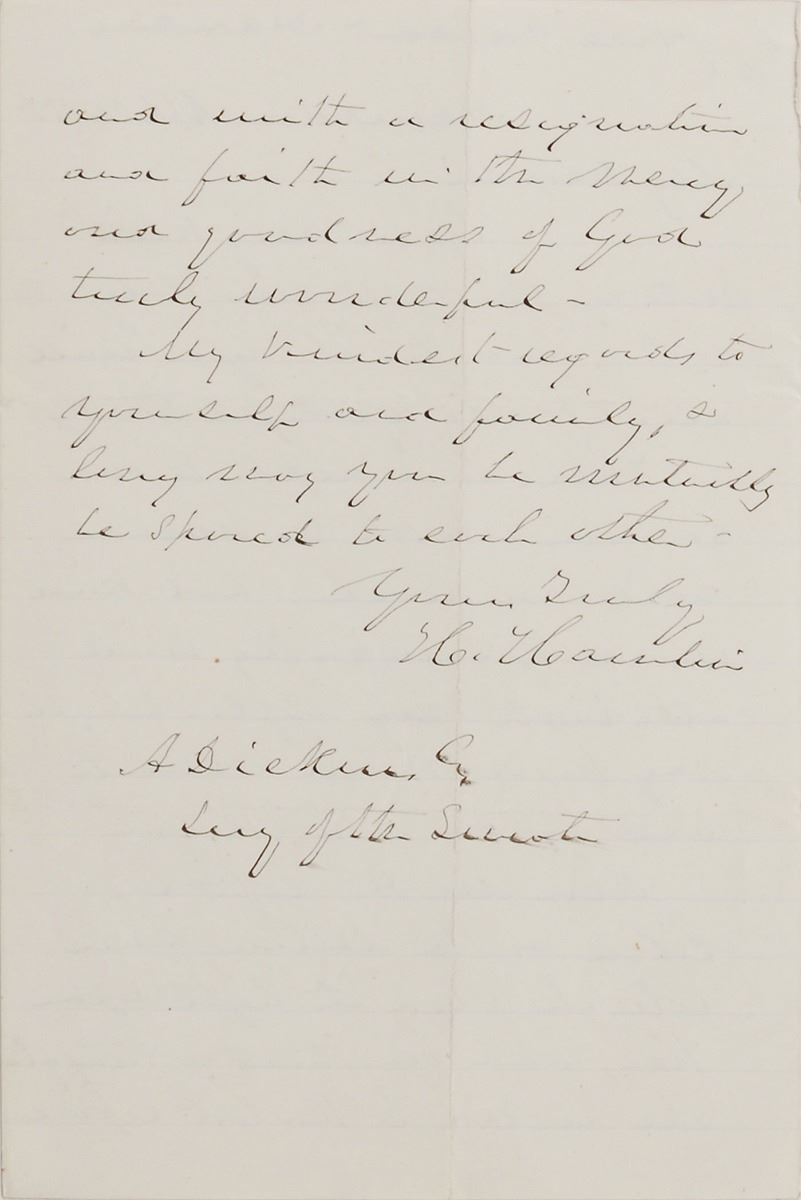 and with a resignation
and faith in the mercy
and goodness of God
truly wonderful -
My kindest regards to
yourself and family, &
long may you be mutually
be spared to each other -
Yours Truly
H. Hamlin
A Dickins, Esq
Secy of the Senate